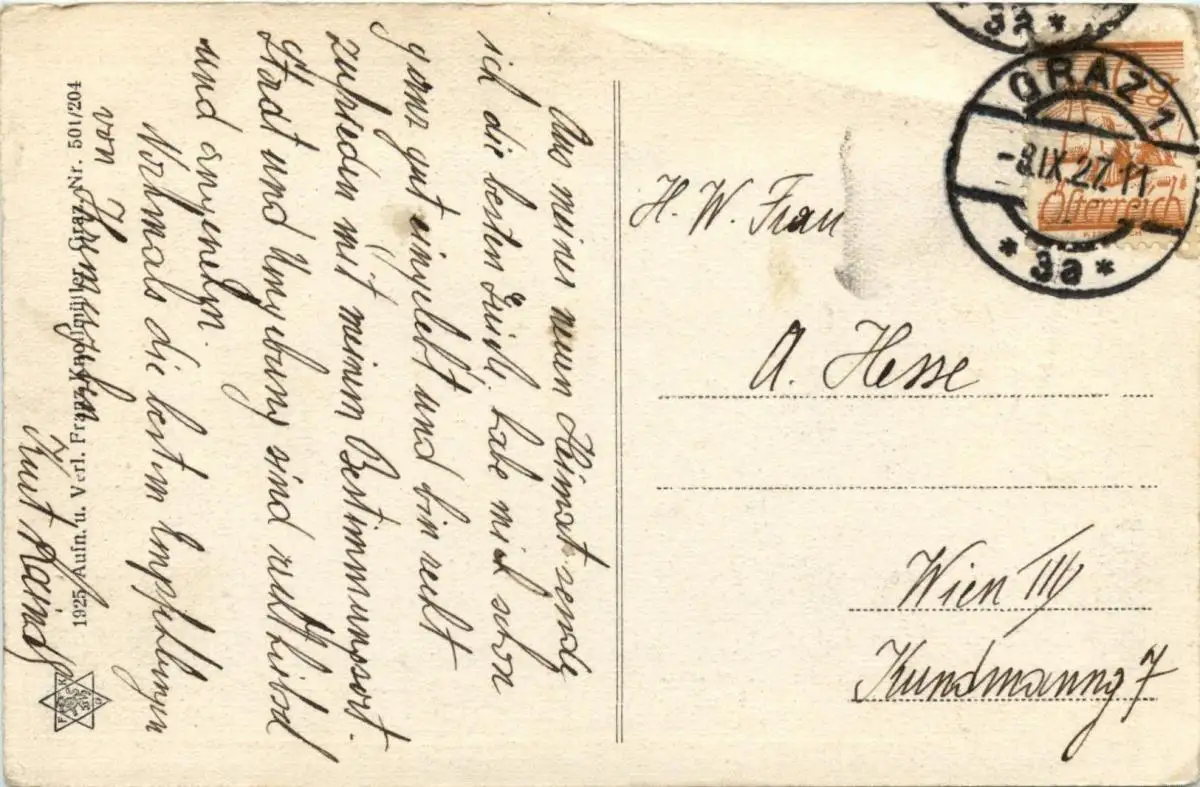 Aus meiner neuen Heimat sende
ich die besten Grüße, habe mich schon
ganz gut eingelebt und bin recht
zufrieden mit meinem Bestimmungsort.
Stadt und Umgebung sind recht
und
Nochmals die besten Empfehlungen
von Ihrem
Kurt
1925 Aufn. u. Verl. Franz Knollmüller, Graz, Nr. 501/204
GRAZ 1
-8.IX.27.11
* 3a *
3a *
Österreich
H. W. Frau
A. Hesse
Wien III
Kundmanng 7